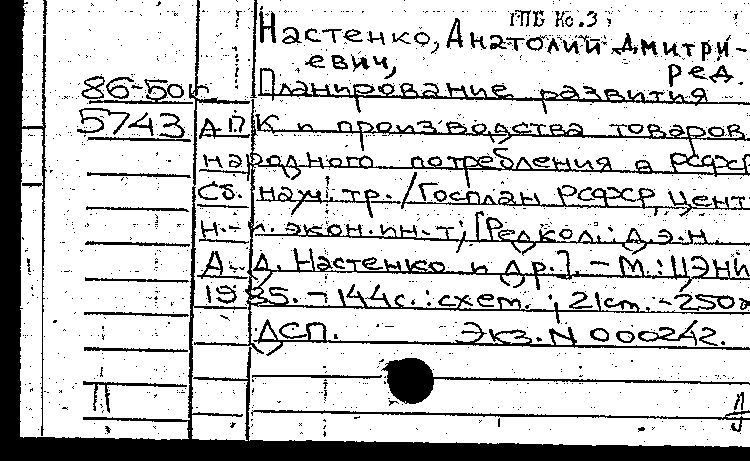 ГПБ Кс.3
Настенко, Анатолий Дмитри-
евич, ред.
86-50к Планирование развития
5743 АПК и производства товаров
народного потребления в РСФСР
Сб. науч. тр. / Госплан РСФСР, Цент
н.-и. экон. ин-т; [Редкол.: д.э.н.
А. Д. Настенко и др.]. - М.: ЦЭНИ
1985. - 144с.: схем.; 21см. - 250э
ДСП. Экз. N 000242.
П